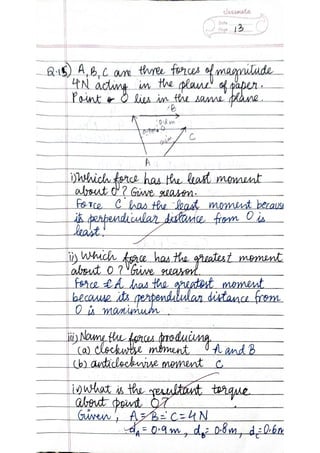 classmate
Date
Page 13
Q.15) A, B, C are three forces of magnitude
4N acting in the plane of paper.
Point O lies in the same plane.
B
0.8m
0.9m O
0.6m
C
A
i) Which force has the least moment
about O? Give reason.
Force C has the least moment because
its perpendicular distance from O is
least.
ii) Which force has the greatest moment
about O? Give reason.
Force A has the greatest moment
because its perpendicular distance from
O is maximum.
iii) Name the forces producing
(a) clockwise moment A and B
(b) anticlockwise moment C
iv) What is the resultant torque
about point O?
Given, A = B = C = 4N
dA = 0.9m, dB = 0.8m, dC = 0.6m